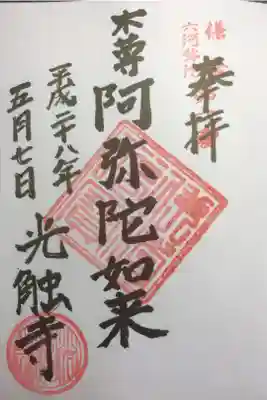 奉拝
本尊
阿弥陀如来
平成二十八年
五月七日
光触寺